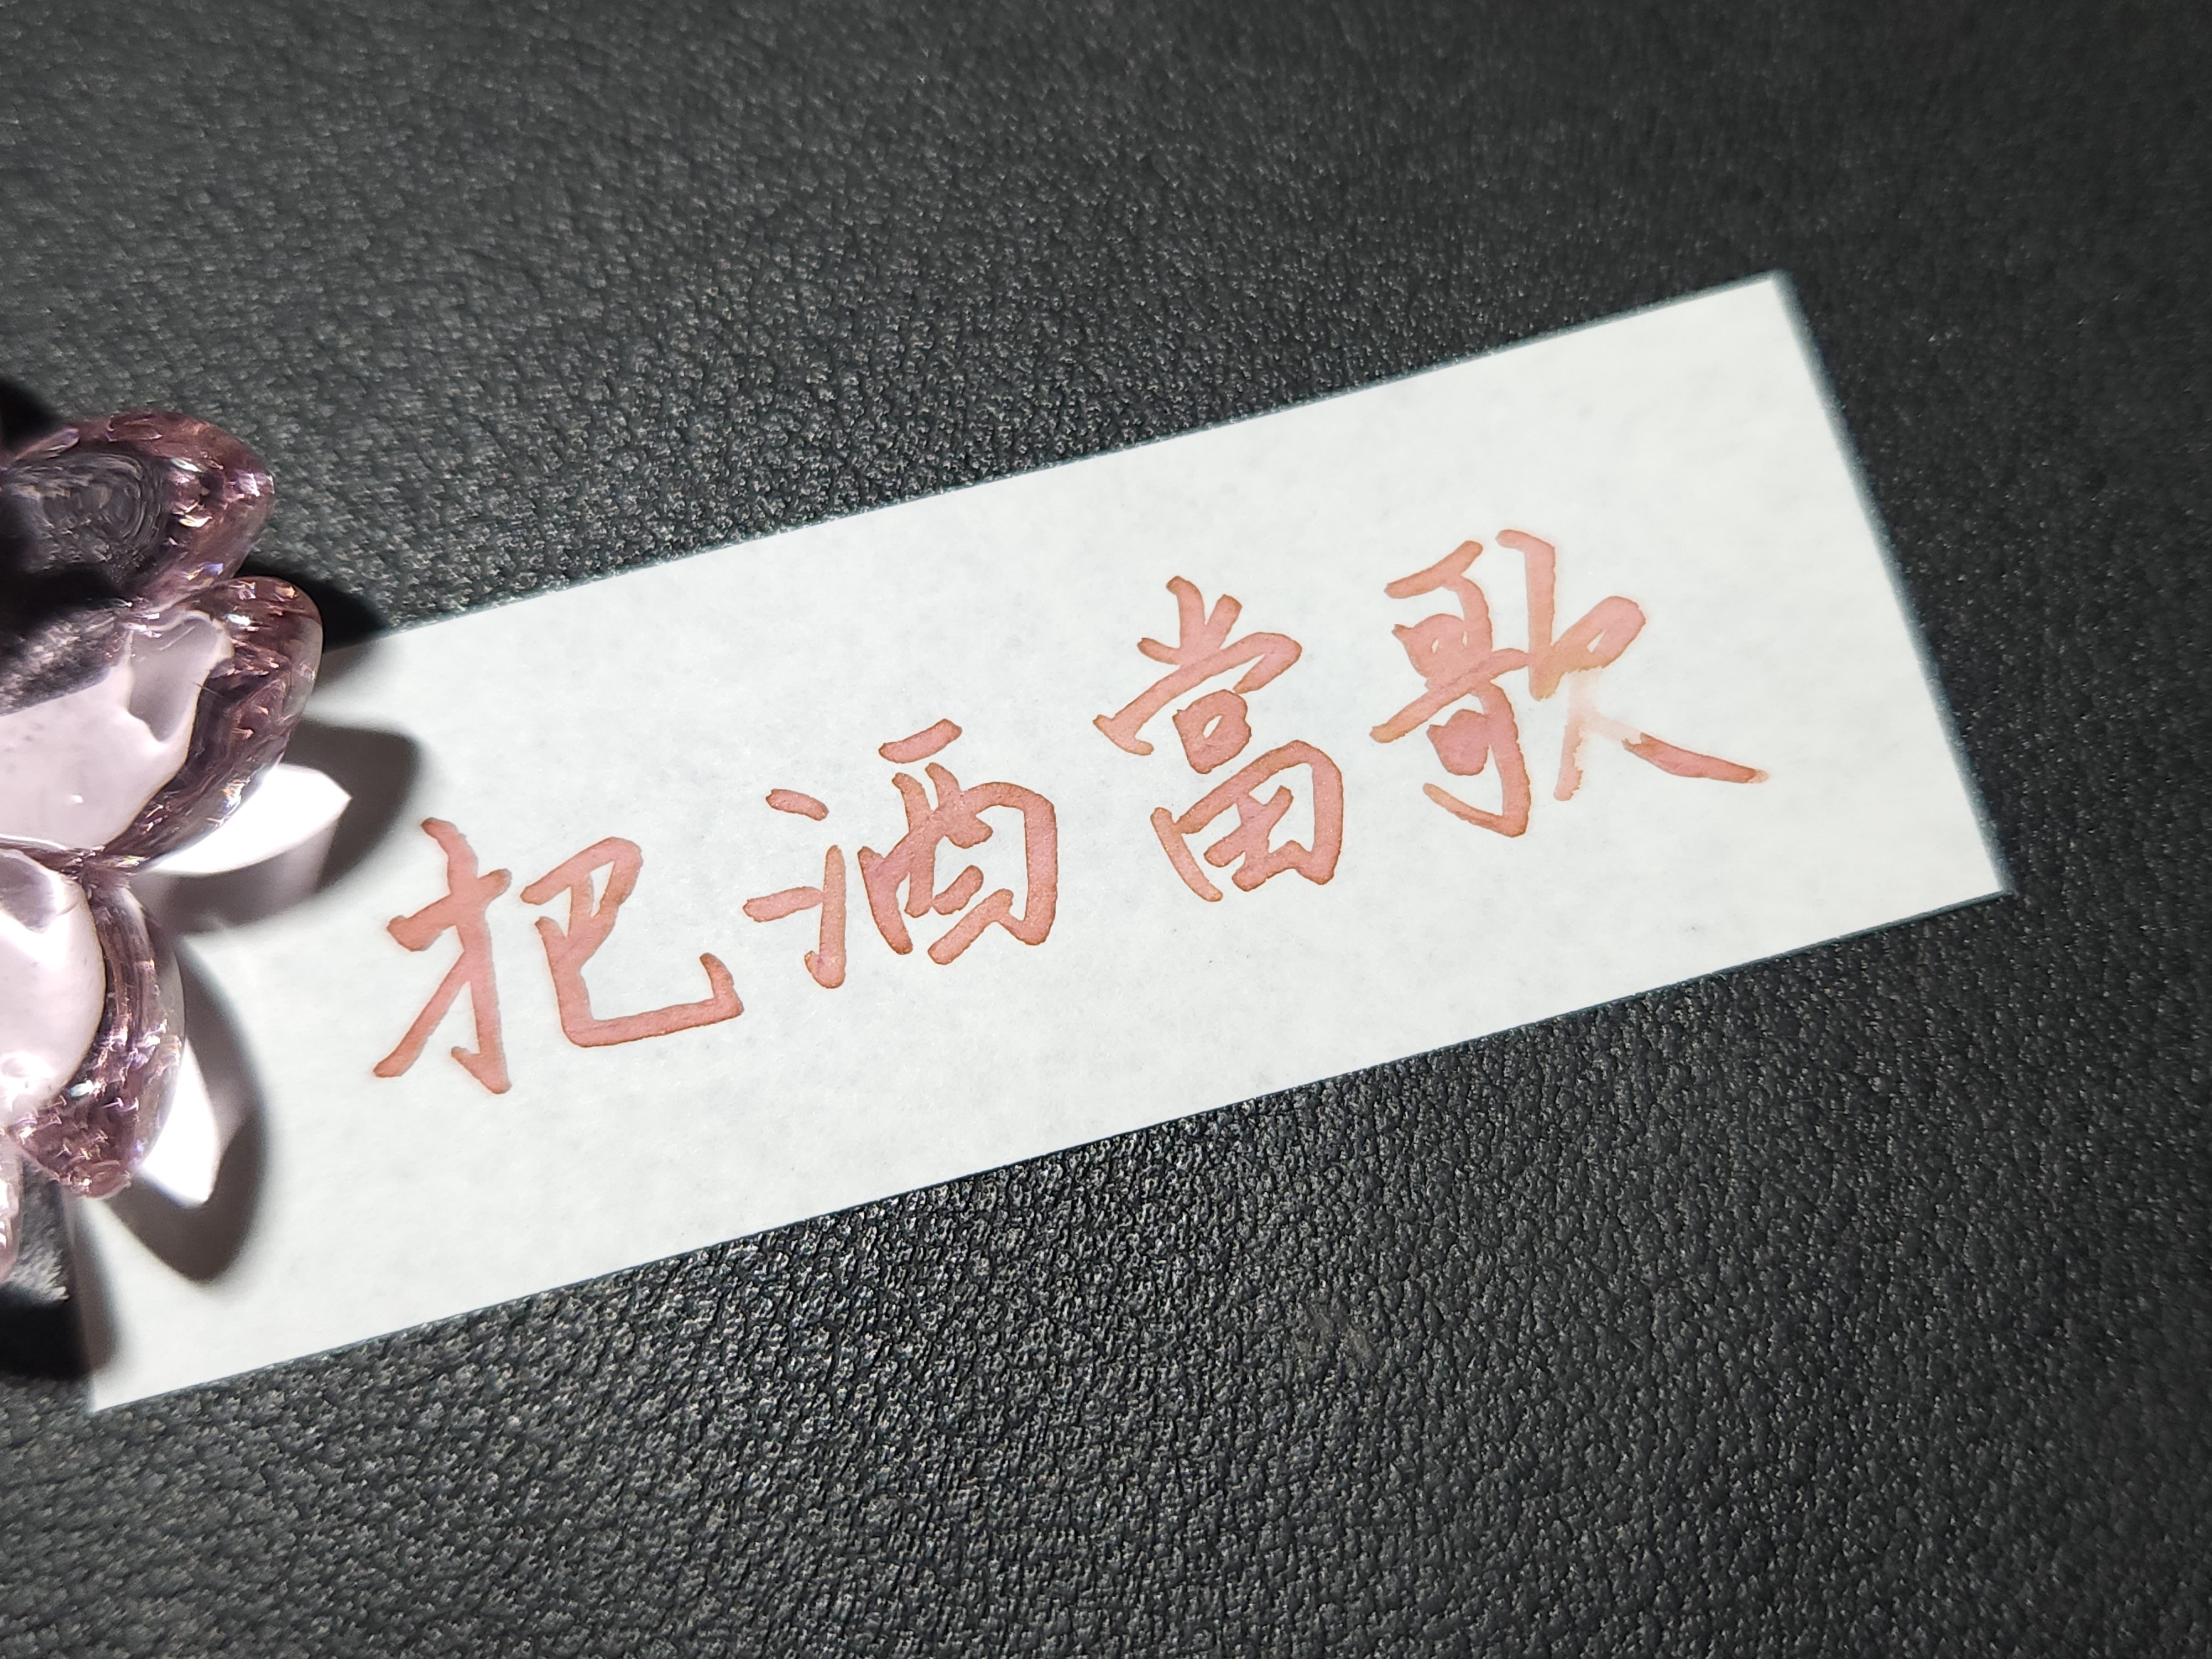 把酒當歌